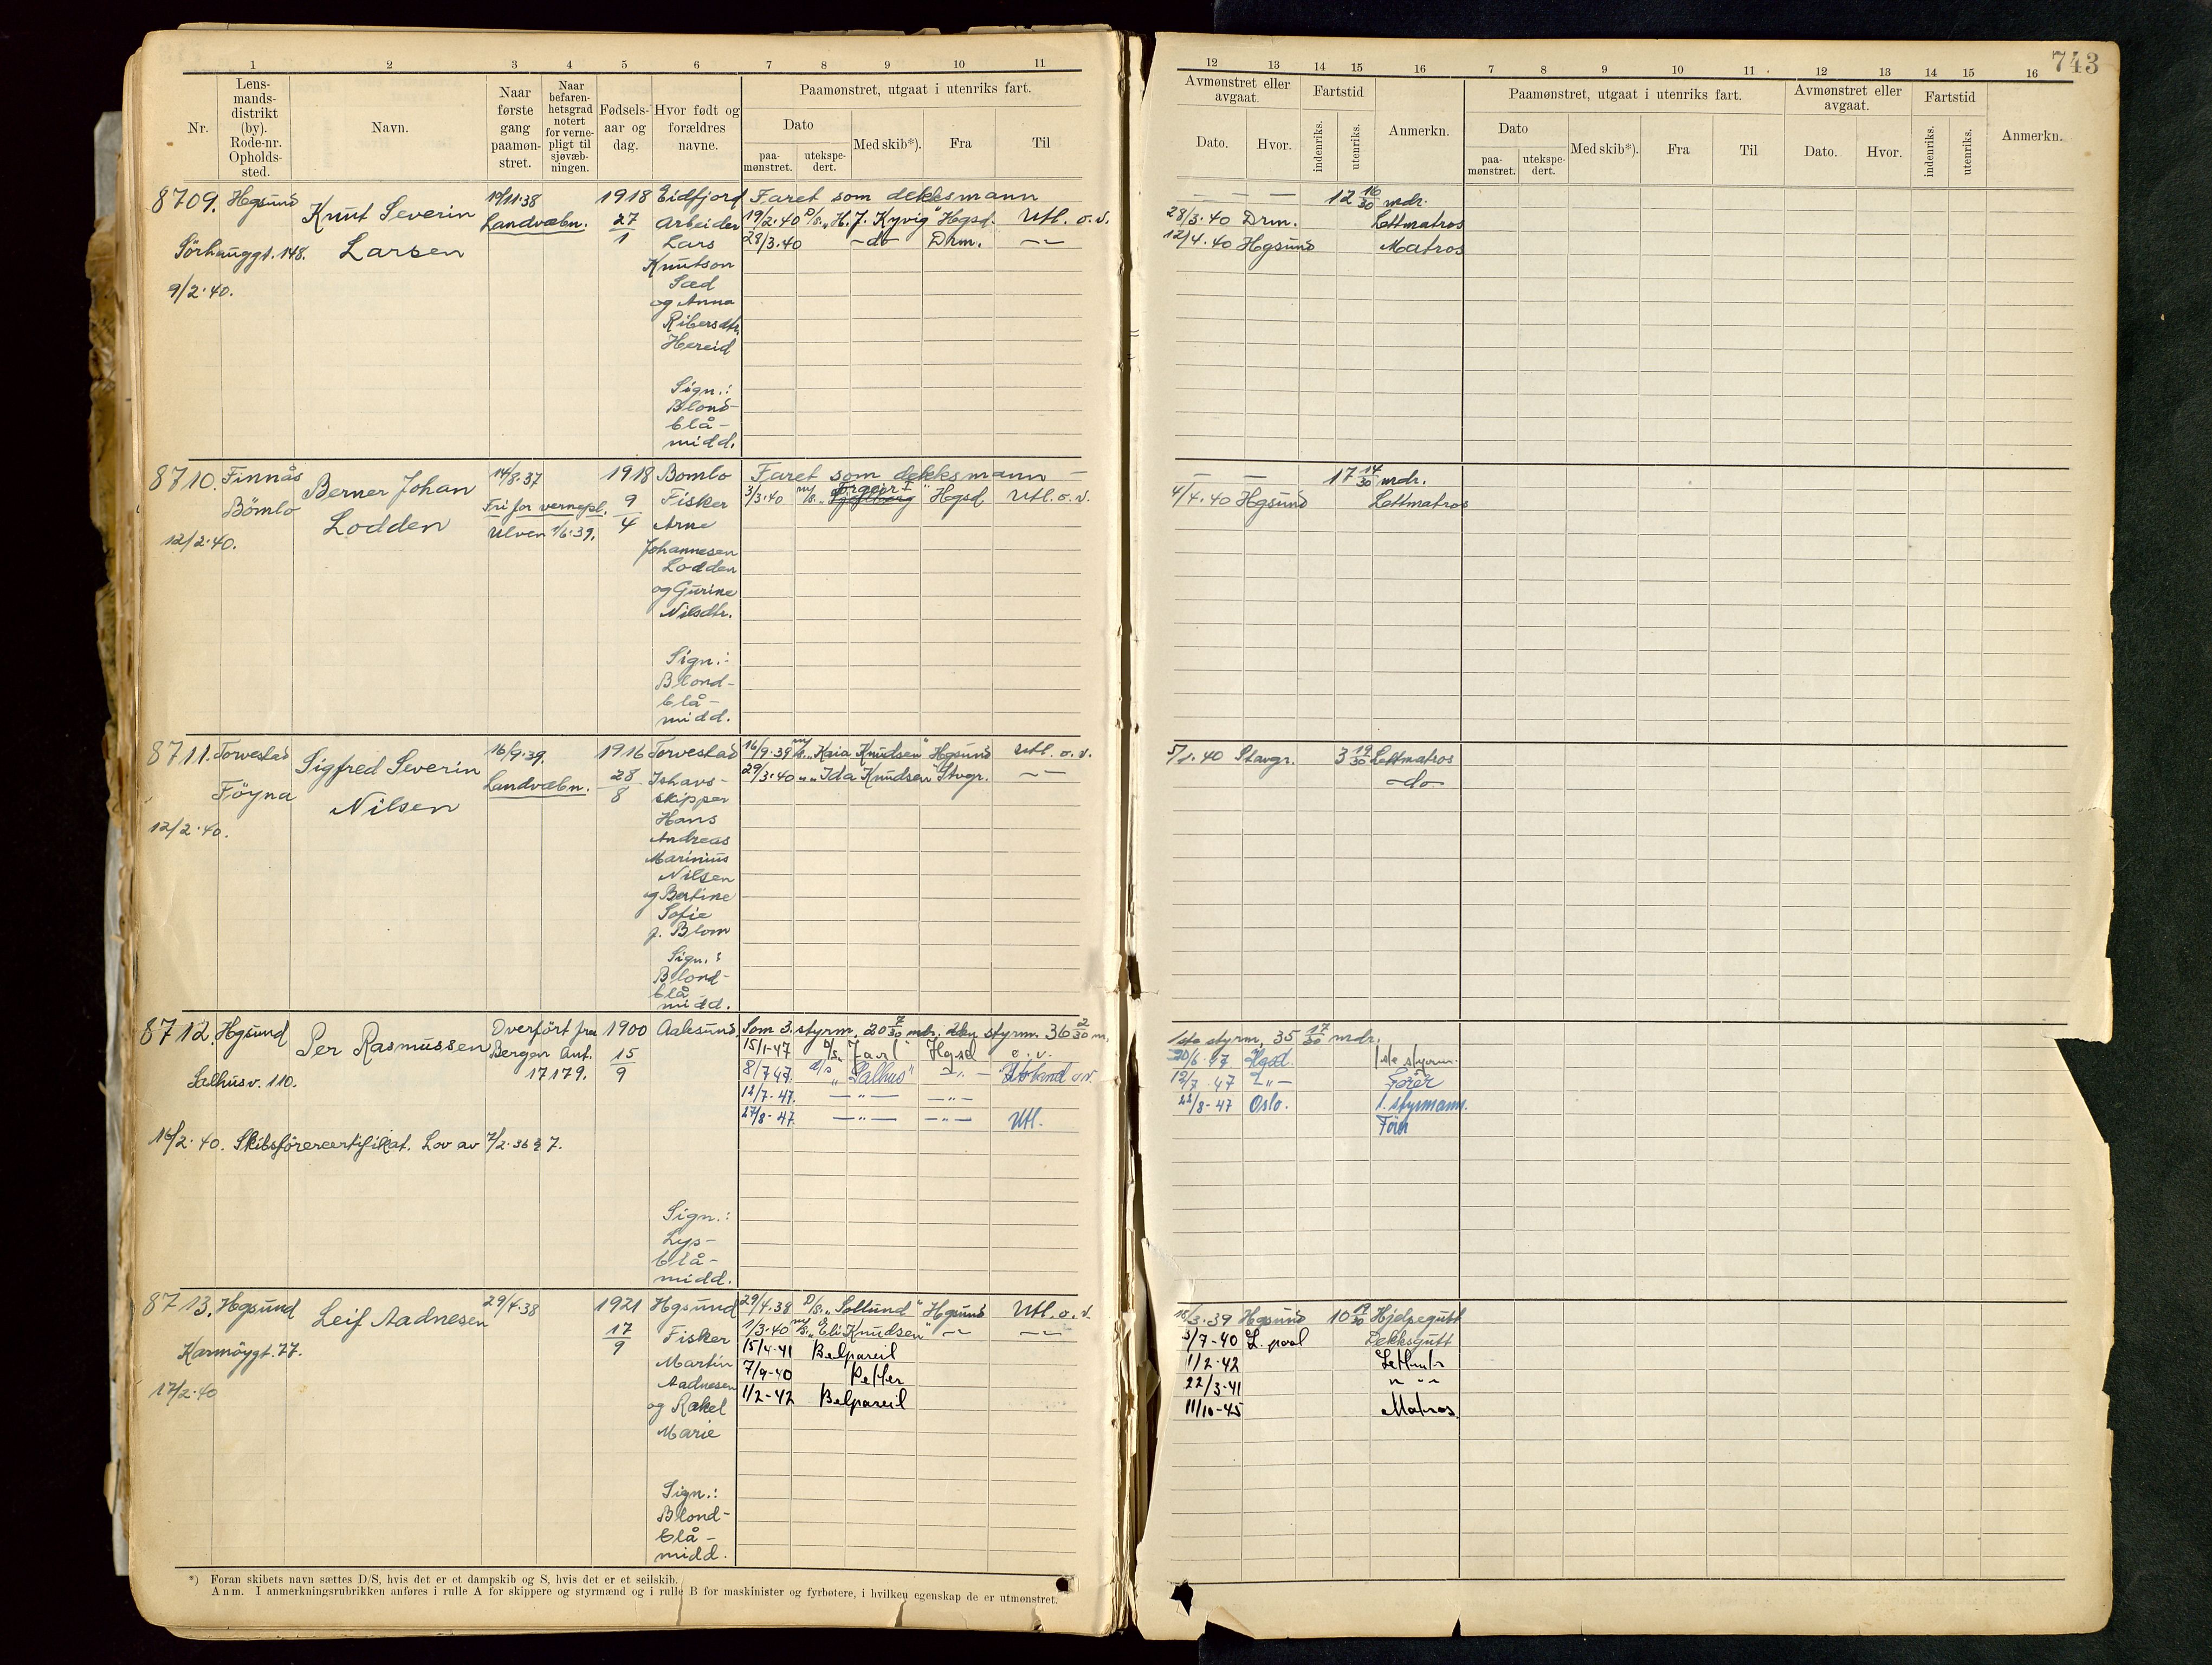 743
1 2 3 4 5 6 7 8 9 10 11
Nr.
Lens-
mands-
distrikt
(by).
Rode-nr.
Opholds-
sted.
Navn.
Naar
første
gang
paamøn-
stret.
Naar
befaren-
hetsgrad
notert
for verne-
pligt til
sjøvæb-
ningen.
Fødsels-
aar og
dag.
Hvor født og
forældres
navne.
Paamønstret, utgaat i utenriks fart.
Dato
paa-
mønstret.
utekspe-
dert.
Med skib*).
Fra
Til
12 13 14 15 16 7 8 9 10 11 12 13 14 15 16
Avmønstret eller
avgaat.
Dato.
Hvor.
Fartstid
indenriks.
utenriks.
Anmerkn.
Paamønstret, utgaat i utenriks fart.
Dato
paa-
mønstret.
utekspe-
dert.
Med skib*).
Fra
Til
Avmønstret eller
avgaat.
Dato.
Hvor.
Fartstid
indenriks.
utenriks.
Anmerkn.
8709. Hgsund
Sörhauggt. 148.
9/2.40.
Knut Severin
Larsen
Landvæbn.
1918
27
1
Eidfjord
Arbeider
Lars
Knutson
Sæd
og Anna
Hereid
Sign.:
Blond-
blå-
midd.
Faret som dekksmann
19/2.40 D/s. „H. J. Kyvig" Hgsd. Utl. o. v.
28/3.40 -do- Drm. -"-
12 16/30 mdr.
28/3.40 Drm. Lettmatros
12/4.40 Hgsund Matros
8710. Finnås
Bömlo
12/2.40.
Berner Johan
Lodden
14/8.37
Fri for vernepl.
Ulven 1/6.39.
1918
9
4
Bomlo
Fisker
Arne
Johannesen
Lodden
og Gurine
Nilsdtr.
Sign.:
Blond-
blå-
midd.
Faret som dekksmann
3/3.40 m/s. Hgsd. Utl. o. v.
17 14/30 mdr.
4/4.40 Hgsund Lettmatros
8711. Torvestad
Föyna
12/2.40.
Sigfred Severin
Nilsen
16/9.39.
Landvæbn.
1916
28
8
Torvestad
Ishavs-
skipper
Hans
Andreas
Marinius
Nilsen
og Bertine
Sofie
f. Blom
Sign.:
Blond-
blå
midd.
16/9.39 m/s. „Kaia Knudsen" Hgsund Utl. o. v.
29/3.40 „ „Ida Knudsen" Stvgr. -"-
5/1.40 Stavgr. 3 19/30 Lettmatros
-do-
8712. Hgsund
Salhusv. 110.
16/2.40. Skibsförercertifikat. Lov av 7/2.36 § 7.
Per Rasmussen
Overfört fra
Bergen Ant.
17179.
1900
15
9
Aalesund
Sign.:
Lys-
blå-
midd.
Som 3. styrm. 20 7/30 mdr. 2den styrm. 36 2/30 m.
15/1-47 D/s. „Jarl" Hgsd e. v.
8/7 47. d/s „Salhus" -"-
12/7-47. -"- -"-
27/8-47. -"- -"- Utl.
1ste styrm. 35 17/30 mdr.
20/6.47 Hgsd. 1ste styrm.
12/7.47 -"- Förer
22/8-47 Oslo. 1. styrmann.
Förer
8713. Hgsund
Karmöygt. 77.
17/2.40
Leif Aadnesen
29/4.38
1921
17
9
Hgsund
Fisker
Martin
Aadnesen
og Rakel
Marie
Sign.:
Blond-
blå-
midd.
29/4.38 D/s. „Solsund" Hgsund Utl. o. v.
1/3.40 m/s. „Eli Knudsen" -"- -"-
15/4-41 Belpareil
7/9-40 Petter
1/2-42 Belpareil
18/3.39 Hgsund 10 19/30 Hjelpegutt
3/7-40 L. pool Dekksgutt
1/2-42 Lettmtr
22/3-41 " " "
11/10-45 Matros.
*) Foran skibets navn sættes D/S, hvis det er et dampskib og S, hvis det er et seilskib.
Anm. I anmerkningsrubrikken anføres i rulle A for skippere og styrmænd og i rulle B for maskinister og fyrbøtere, i hvilken egenskap de er utmønstret.